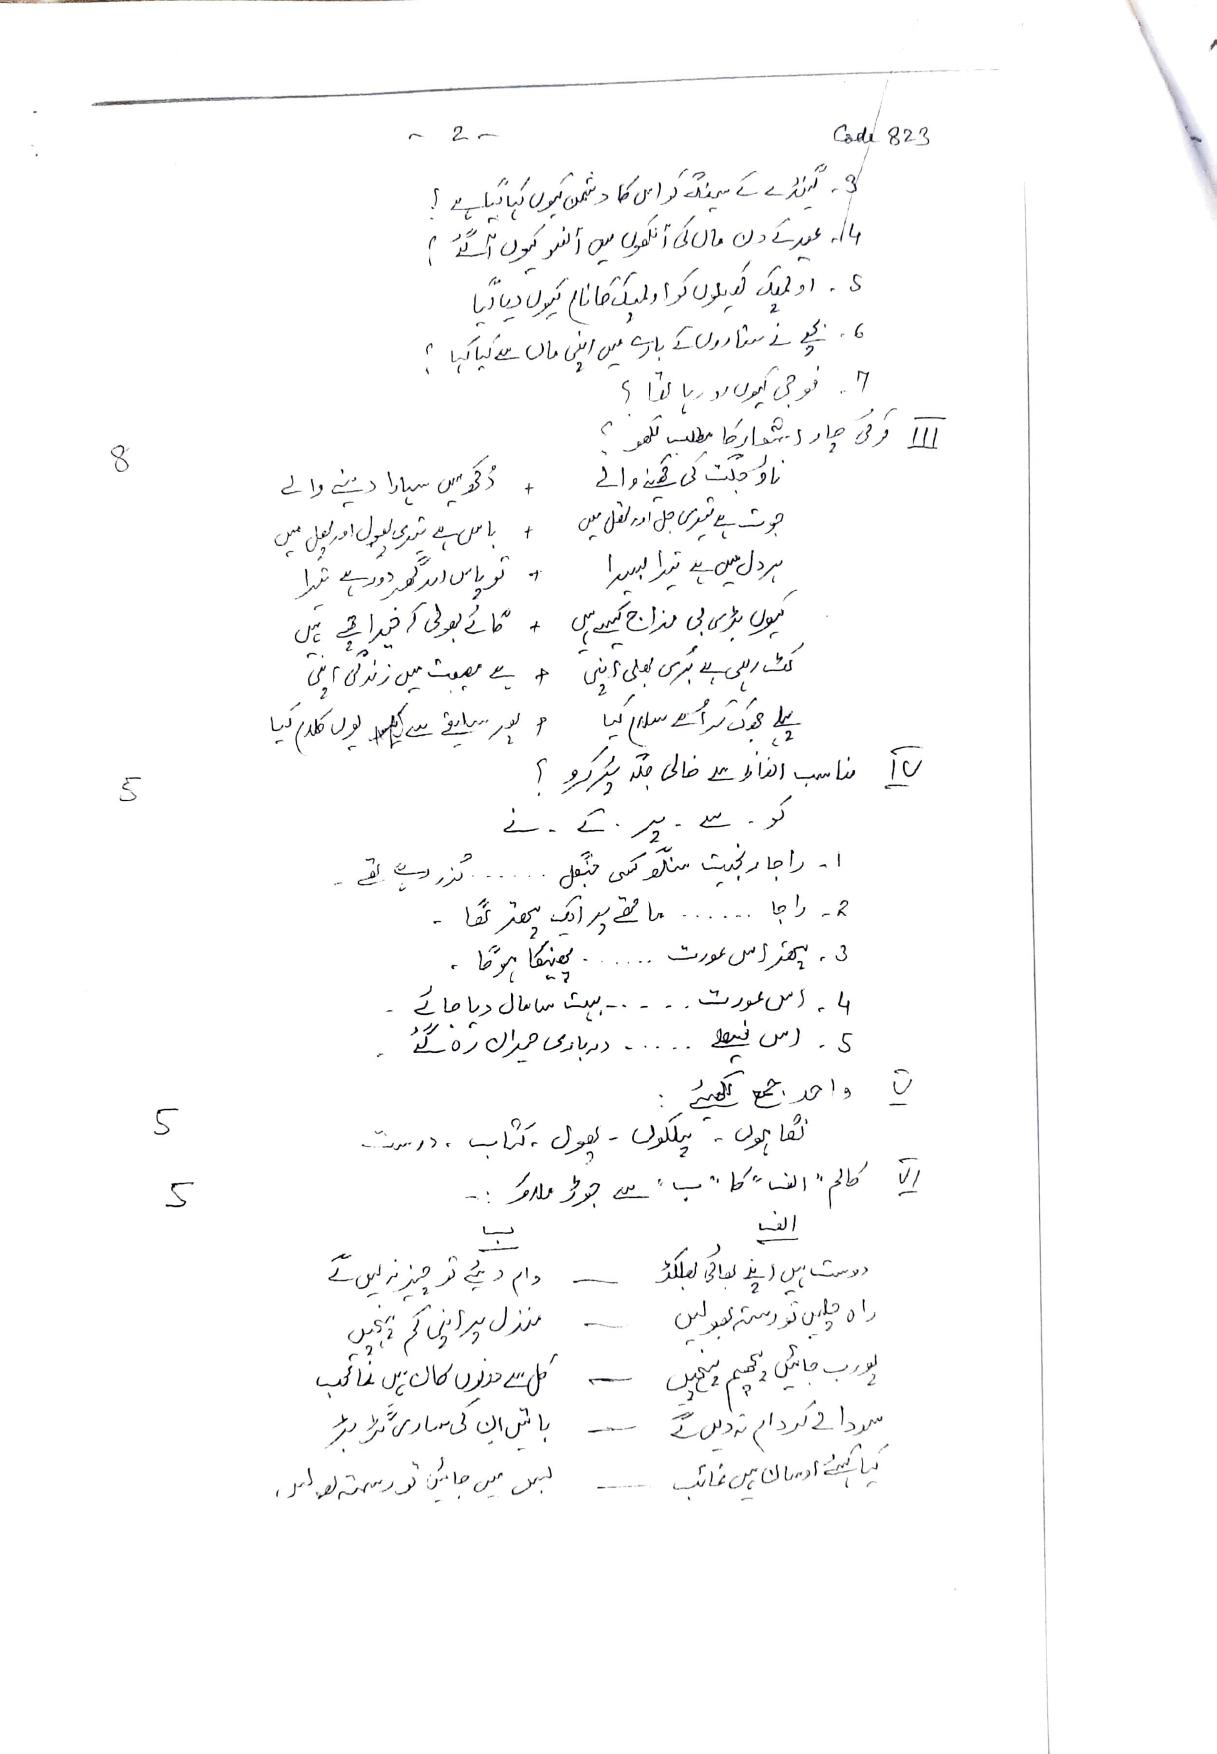 Code 823
- 2 -
3. گینڈے کے سینگ کو اس کا دشمن کیوں کہا گیا ہے ؟
4. عید کے دن ماں کی آنکھوں میں آنسو کیوں آ گئے ؟
5. اولمپک کھیلوں کو اولمپک کا نام کیوں دیا گیا
6. بچے نے ستاروں کے بارے میں اپنی ماں سے کیا کہا ؟
7. فوجی کیوں رو رہا تھا ؟
III کوئی چار اشعار کا مطلب لکھو ؟ 8
ناؤ جگت کی کھینے والے + دُکھ میں سہارا دینے والے
جوت ہے تیری جل اور تھل میں + باس ہے تیری پھول اور پھل میں
ہر دل میں ہے تیرا بسیرا + تو پاس اور گھر دور ہے تیرا
کیوں بڑی بی مزاج کیسے ہیں + گائے بولی کہ خیر اچھے ہیں
کٹ رہی ہے بُری بھلی اپنی + ہے مصیبت میں زندگی اپنی
پہلے جھک کر اُسے سلام کیا + پھر سلیقے سے یوں کلام کیا
IV مناسب الفاظ سے خالی جگہ پُر کرو ؟ 5
کو - سے - پر - کے - نے
1- راجا رنجیت سنگھ کسی جنگل ...... گزر رہے تھے -
2- راجا ...... ماتھے پر ایک پتھر لگا -
3. پتھر اس عورت ...... پھینکا ہوگا .
4. اس عورت ..... بہت سا مال دیا جائے -
5. اس فیصلے ...... درباری حیران رہ گئے .
V واحد جمع لکھیئے : 5
نگاہوں - پلکوں - پھول - کتاب - درست
VI کالم "الف" کا "ب" سے جوڑ ملاؤ :- 5
الف ب
دوست ہیں اپنے بھائی بھلکڑ — دام دیئے تو چیز نہ لیں گے
راہ چلیں تو رستہ بھولیں — منزل پر اپنی کم پہنچیں
پورب جائیں پچھم پہنچیں — کل سے دونوں کان ہیں غائب
سودا لے کر دام نہ دیں گے — باتیں ان کی ساری گڑبڑ
کیا کہئے اوسان ہیں غائب — بس میں جائیں تو رستہ بھولیں